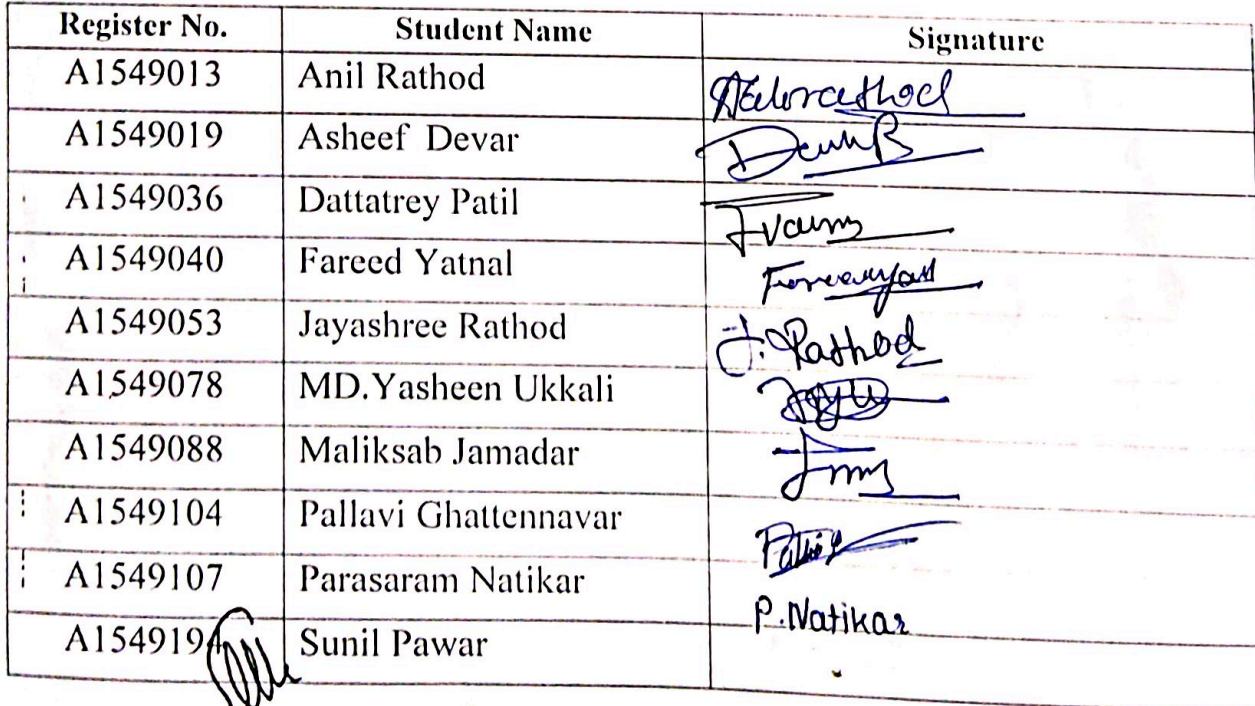 Register No. Student Name Signature
A1549013 Anil Rathod
A1549019 Asheef Devar
A1549036 Dattatrey Patil
A1549040 Fareed Yatnal
A1549053 Jayashree Rathod J. Rathod
A1549078 MD.Yasheen Ukkali
A1549088 Maliksab Jamadar
A1549104 Pallavi Ghattennavar
A1549107 Parasaram Natikar P.Natikar
Sunil Pawar